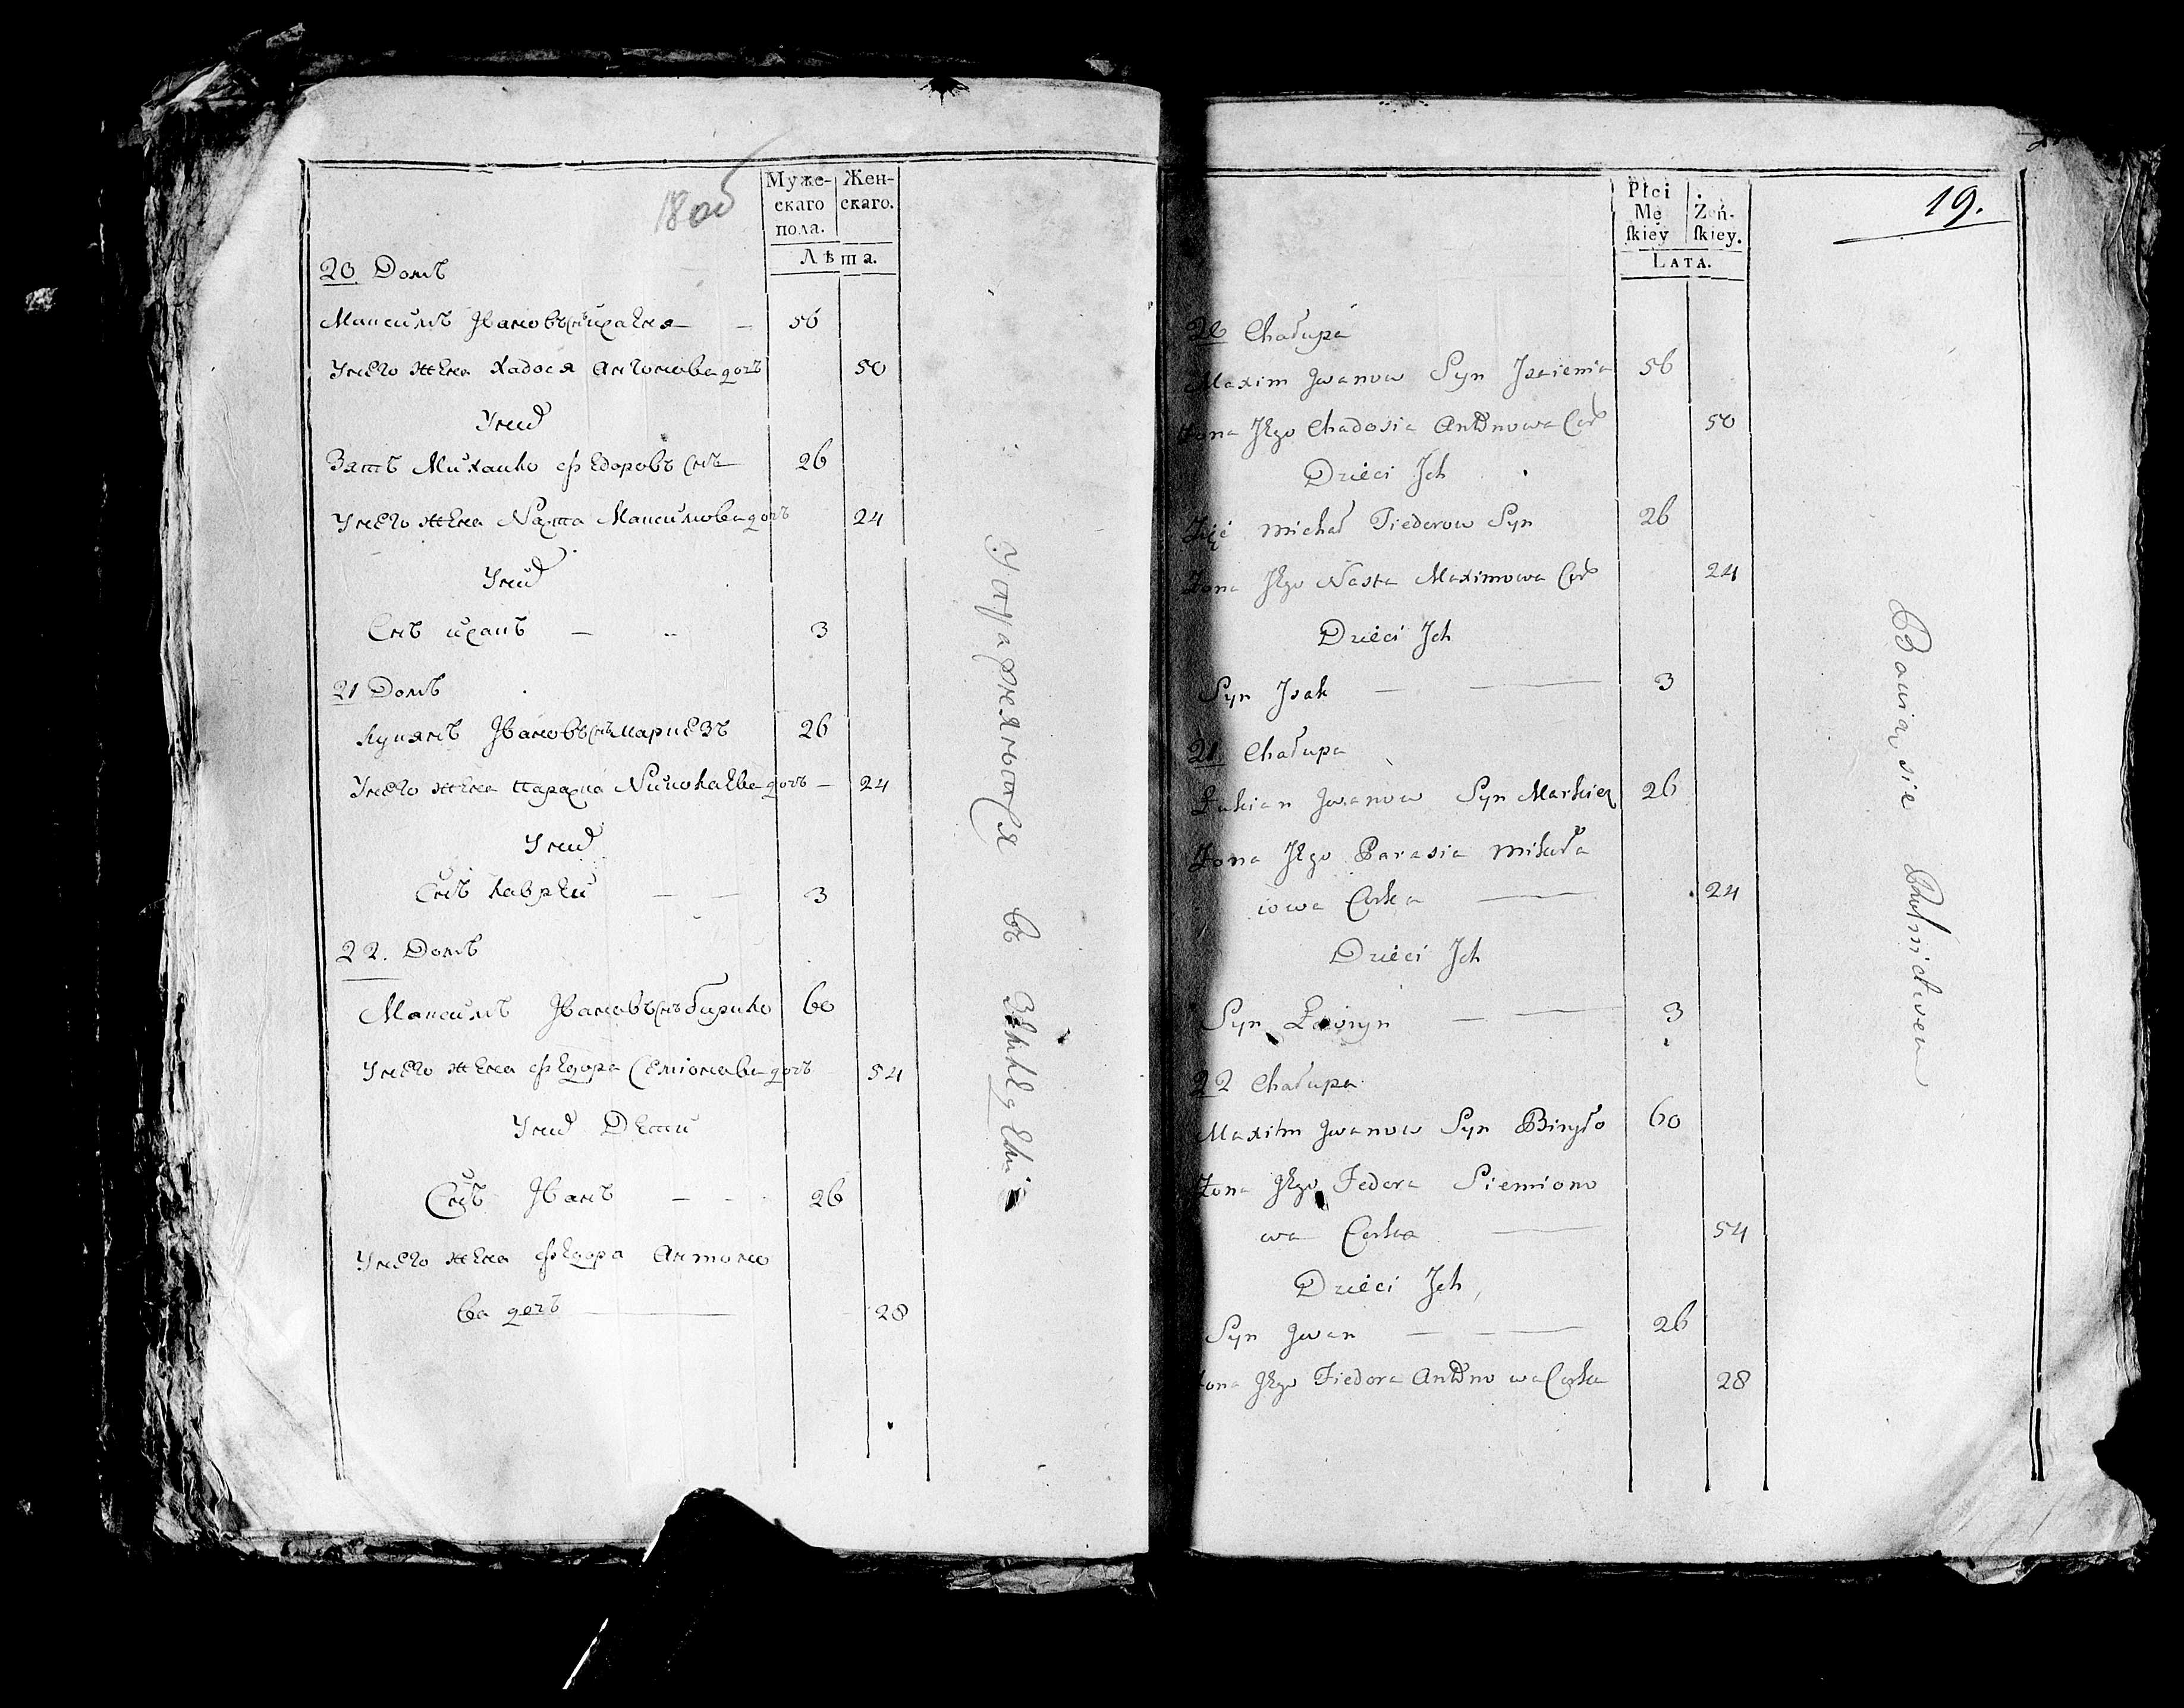 18 об
Муже-
скаго
пола.
Жен-
скаго.
Лѣта.
20 Домъ
Максимъ Ивановъ снъ исаеня — 56
У него жена Хадося Антонова дочъ 50
У них
Зять Михайло Федоровъ снъ 26
У него жена Наста Максимова дочъ 24
У них
Снъ исакъ — 3
21 Домъ
Лукянъ Ивановъ снъ маркезъ 26
У него жена параска Николаева дочъ — 24
У них
Снъ лаврен — — 3
22. Домъ
Максимъ Ивановъ снъ бирило 60
У него жена Федора Семіонова дочъ 54
У них Дети
Снъ Иванъ — - 26
У него жена Федора Антоно
ва дочъ — 28
въ
19.
Płci
Mę
ſkiey
Zeń-
ſkiey.
LATA.
20 Chałupa
Maxim Jwanow Syn Jsaienia 56
Żona Jego Chadosia Antonowa Cor 50
Dzieci Jch
Zięć Michał Fiederow Syn 26
Żona Jego Nasta Maximowa Cor 24
Dzieci Jch
Syn Jsak — — 3
21. Chałupa
Łukian Jwanow Syn Markiez 26
Żona Jego Parasia Mikoła
iowa Corka — 24
Dzieci Jch
Syn Ławryn — — 3
22 Chałupa
Maxim Jwanow Syn Biryło 60
Żona Jego Fedora Siemiono
wa Corka — 54
Dzieci Jch
Syn Jwan — - — 26
Żona Jego Fiedora Antono wa Corka 28
Bawią sie Rolnictwem